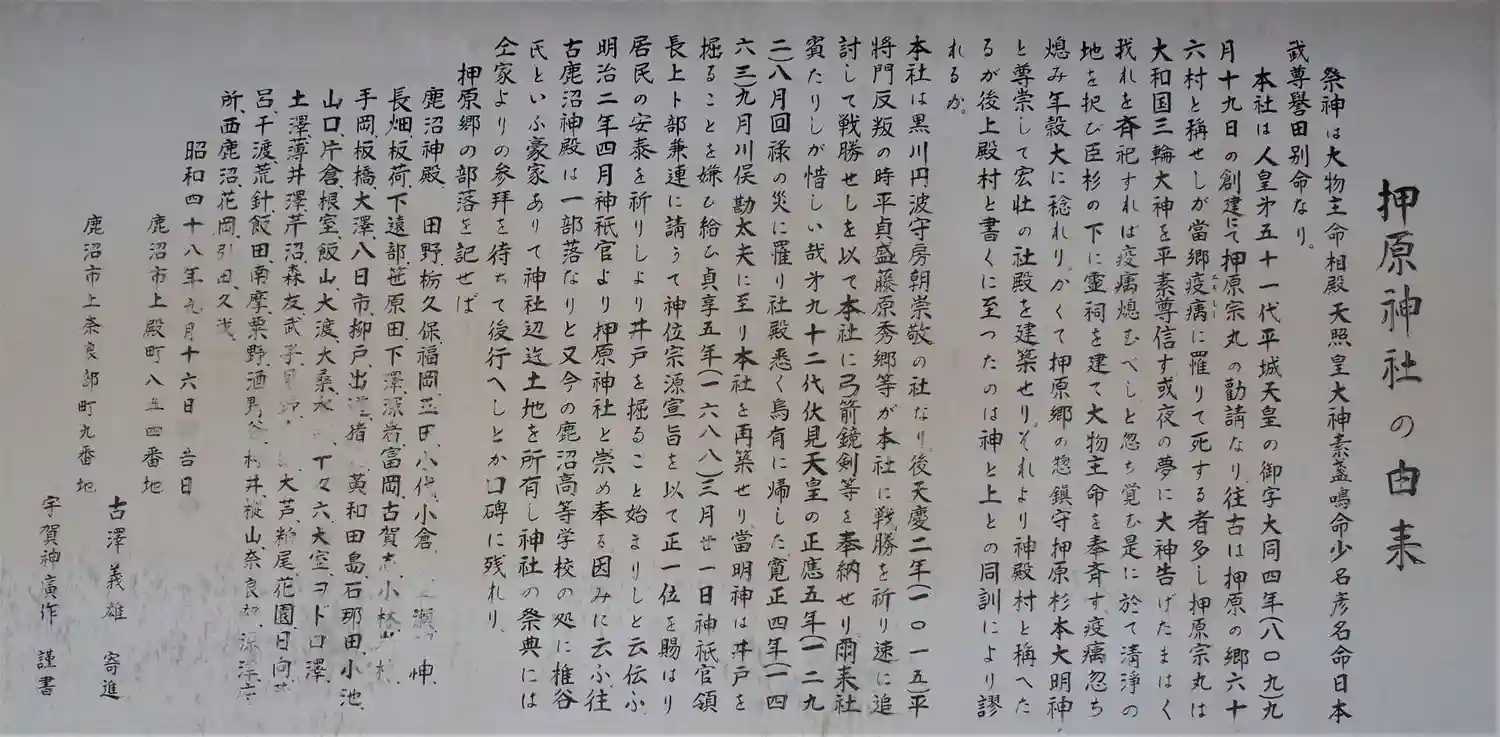 押原神社の由来
祭神は大物主命相殿天照皇大神素盞鳴命少名彦名命日本
武尊譽田別命なり。
本社は人皇㐧五十一代平城天皇の御字大同四年(八〇九)九
月十九日の創建にて押原宗丸の勸請なり、往古は押原の郷六十
六村と稱せしが當郷疫癘に罹りて死する者多し押原宗丸は
大和国三輪大神を平素尊信す或夜の夢に大神告げたまはく
我れを斉祀すれば疫癘熄むべしと忽ち覚む是に於て淸淨の
地を択び臣杉の下に霊祠を建て大物主命を奉斉す、疫癘忽ち
熄み年穀大に稔れり。かくて押原郷の惣鎮守押原杉本大明神
と尊崇して宏壮の社殿を建築せり。それより神殿村と稱へた
るが後上殿村と書くに至つたのは神と上との同訓により謬
れるか。
本社は黒川円波守房朝崇敬の社なり、後天慶二年(一〇一五)平
将門反叛の時平貞盛藤原秀郷等が本社に戦勝を祈り速に追
討して戦勝せしを以て本社に弓箭鏡剣等を奉納せり爾来社
賓たりしが惜しい哉㐧九十二代伏見天皇の正應五年(一二九
二)八月回祿の災に罹り社殿悉く烏有に帰した寛正四年(一四
六三)九月川俣勘太夫に至り本社を再築せり、當明神は井戸を
掘ることを嫌ひ給ひ貞享五年(一六八八)三月廿一日神祇官領
長上卜部兼連に請うて神位宗源宣旨を以て正一位を賜はり
居民の安泰を祈りしより井戸を掘ること始まりしと云伝ふ
明治二年四月神祇官より押原神社と崇め奉る因みに云ふ往
古鹿沼神殿は一部落なりと又今の鹿沼高等学校の処に椎谷
民といふ豪家ありて神社辺迄土地を所有し神社の祭典には
仝家よりの参拜を待ちて後行へしとか口碑に残れり、
押原郷の部落を記せば
鹿沼神殿 田野、栃久保、福岡、玉田、小代、小倉、 瀬
長畑、板荷、下遠部、笹原田、下澤、深岩、富岡、古賀志、小林
手岡、板橋、大澤、八日市、柳戸、出 猪 黃和田島、石那田、小池、
山口、片倉、根室、飯山、大渡、大桑、 大室、ヨドロ澤、
土澤、薄井澤、芹沼、森友、武子、見 大芦、粕尾、花園、日向、
呂、千渡、荒針、飯田、南摩、粟野、酒野谷、村井、樅山、奈良部、
所、西鹿沼、花岡、引田、久我、
昭和四十八年九月十六日 吉日
鹿沼市上殿町八五四番地
古澤義雄 寄進
鹿沼市上奈良部町九番地
宇賀神廣作 謹書